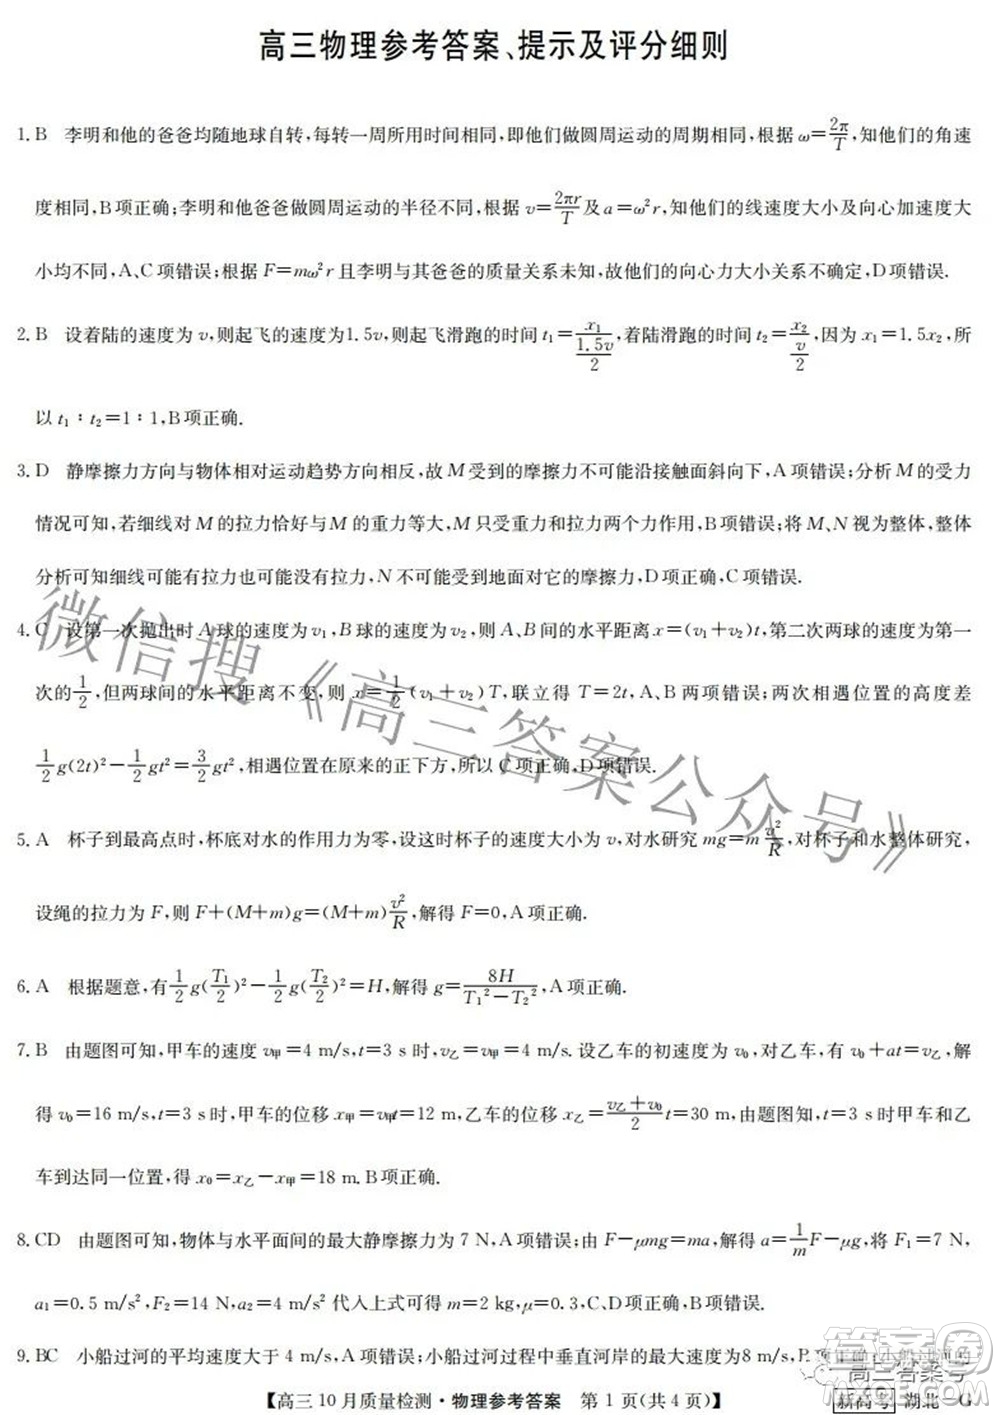 高三物理参考答案、提示及评分细则
1. B 李明和他的爸爸均随地球自转,每转一周所用时间相同,即他们做圆周运动的周期相同,根据 ω=2π/T,知他们的角速
度相同,B项正确;李明和他爸爸做圆周运动的半径不同,根据 v=2πr/T及 a=ω²r,知他们的线速度大小及向心加速度大
小均不同,A、C项错误;根据 F=mω²r 且李明与其爸爸的质量关系未知,故他们的向心力大小关系不确定,D项错误.
2. B 设着陆的速度为 v,则起飞的速度为1.5v,则起飞滑跑的时间 t₁=x₁/(1.5v/2),着陆滑跑的时间 t₂=x₂/(v/2),因为 x₁=1.5x₂,所
以 t₁∶t₂=1∶1,B项正确.
3. D 静摩擦力方向与物体相对运动趋势方向相反,故 M 受到的摩擦力不可能沿接触面斜向下,A项错误;分析 M 的受力
情况可知,若细线对 M 的拉力恰好与 M 的重力等大,M 只受重力和拉力两个力作用,B项错误;将 M、N 视为整体,整体
分析可知细线可能有拉力也可能没有拉力,N 不可能受到地面对它的摩擦力,D项正确,C项错误.
4. C 设第一次抛出时 A 球的速度为 v₁,B 球的速度为 v₂,则 A、B 间的水平距离 x=(v₁+v₂)t,第二次两球的速度为第一
次的 1/2,但两球间的水平距离不变,则 x=1/2(v₁+v₂)T,联立得 T=2t,A、B 两项错误;两次相遇位置的高度差
1/2 g(2t)²-1/2 gt²=3/2 gt²,相遇位置在原来的正下方,所以 C项正确,D项错误.
5. A 杯子到最高点时,杯底对水的作用力为零,设这时杯子的速度大小为 v,对水研究 mg=m v²/R,对杯子和水整体研究,
设绳的拉力为 F,则 F+(M+m)g=(M+m)v²/R,解得 F=0,A项正确.
6. A 根据题意,有 1/2 g(T₁/2)²-1/2 g(T₂/2)²=H,解得 g=8H/(T₁²-T₂²),A项正确.
7. B 由题图可知,甲车的速度 v甲=4 m/s,t=3 s 时,v乙=v甲=4 m/s. 设乙车的初速度为 v₀,对乙车,有 v₀+at=v乙,解
得 v₀=16 m/s,t=3 s时,甲车的位移 x甲=v甲t=12 m,乙车的位移 x乙=(v乙+v₀)/2 t=30 m,由题图知,t=3 s时甲车和乙
车到达同一位置,得 x₀=x乙-x甲=18 m,B项正确.
8. CD 由题图可知,物体与水平面间的最大静摩擦力为 7 N,A项错误;由 F-μmg=ma,解得 a=1/m F-μg,将 F₁=7 N,
a₁=0.5 m/s²,F₂=14 N,a₂=4 m/s² 代入上式可得 m=2 kg,μ=0.3,C、D项正确,B项错误.
9. BC 小船过河的平均速度大于 4 m/s,A项错误;小船过河过程中垂直河岸的最大速度为8 m/s,
【高三10月质量检测·物理参考答案 第 1 页(共 4 页)】
新高考 湖北—G
微信搜《高三答案公众号》
高三答案号
答案圈